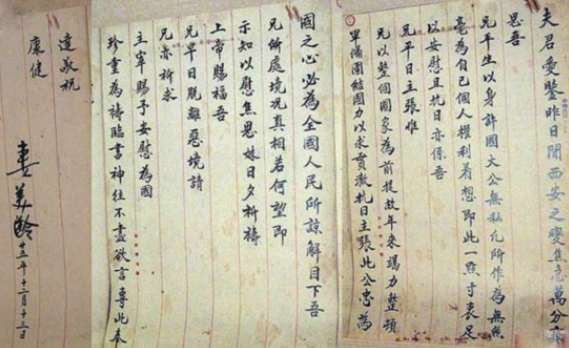 夫君愛鑒昨日聞西安之變焦急萬分
思吾
兄平生以身許國大公無私凡所作為無絲
毫為自己個人權利着想即此一點寸衷足
以安慰且抗日亦係吾
兄平日主張惟
兄以整個國家為前提故年來竭力整頓
軍備團結國力以求貫澈抗日主張此公忠為
國之心必為全國人民所諒解目下吾
兄所處境況真相若何望即
示知以慰焦思妹日夕祈禱
上帝賜福吾
兄早日脫離惡境請
兄亦祈求
主宰賜予安慰為國
珍重為禱臨書神往不盡欲言專此奉
達敬祝
康健
妻美齡 廿五年十二月十三日